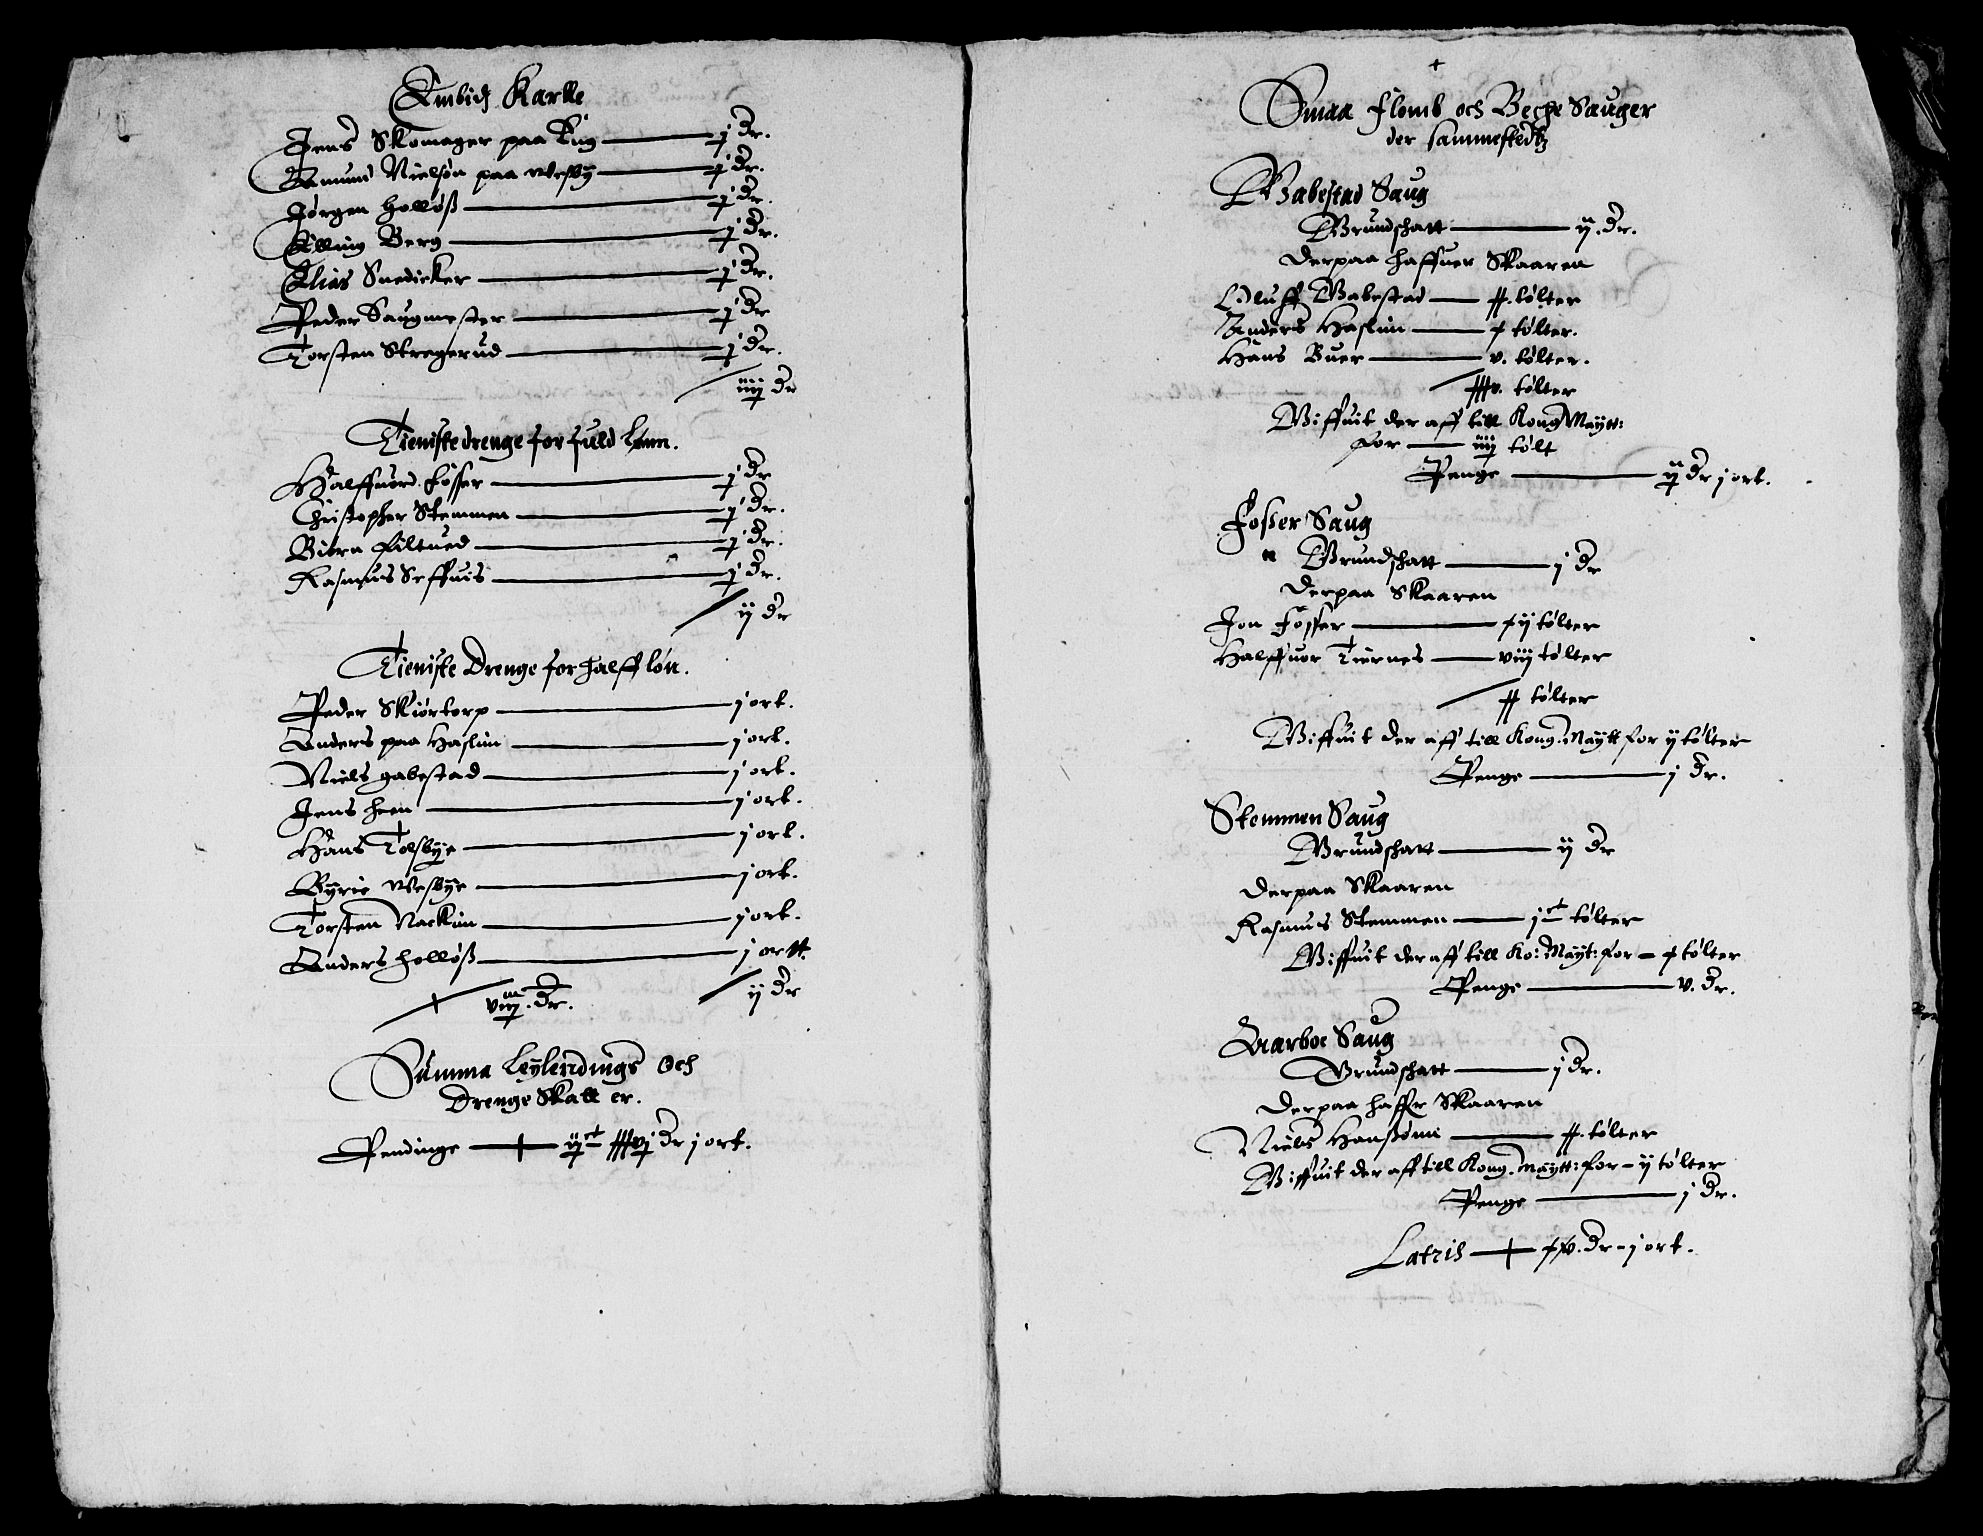 Embids Karlle
Jens Skomager paa Rug — j dr.
Amund Nielsøn paa Wesby — j dr.
Jørgen Holløß — j dr.
Elling Berg — j dr.
Elias Snedicker — j dr.
Peder Saugmester — j dr
Torsten Stregerud — j dr.
iiij dr
Tieniste drenge for fuld lønn.
Halffuord Fosser — j dr
Christopher Stemmen — j dr.
Biørn Filtued — j dr.
Rasmus Seffuis — j dr.
ij dr
Tieniste Drenge for halff løn.
Peder Skiørtorp — j ort.
Anders paa Haslum — j ort.
Niels gabestad — j ort.
Jens heen — j ort.
Hans Tolsbye — j ort.
Gyrie Wesbye — j ort.
Torsten Nackim — j ort.
Anders Holløß — j ortt.
viij dr. ij dr
Summa Leylendings Och
Drenge Skatt er.
Pendinge — dr j ort.
Smaa Flomb och Becke Sauger
der sammestedtz
Gabestad Saug
Grundschatt — ij. dr.
Derpaa haffuer Skaaren
Oluff Gabestad — xx. tølter
Anders Haslum — x tølter.
Hans Buer — v. tølter.
xxxv. tølter
Giffuit der aff till Kong Maytt:
for — iiij tølt
Penge — ij dr j ort.
Foßer Saug
Grundschatt — j dr
Derpaa Skaaren
Jon Fosser — xij tølter
Halffuor Tiernes — viij tølter
xx tølter
Giffuit der aff till Kong. Maytt for ij tølter
Penge — j dr.
Stemmen Saug
Grundschatt — ij dr
Derpaa Skaaren
Rasmus Stemmen — jct tølter
Giffuit der aff till Ko: Mayt: for — x tølter
Penge — v. dr.
Aarboe Saug
Grundschatt — j dr.
Derpaa haffr Skaaren
Niels Hanßønn — xx. tølter
Giffuit der aff till Kong. Maytt: for — ij tølter
Penge — j dr.
Latris — xv. dr — j ort.